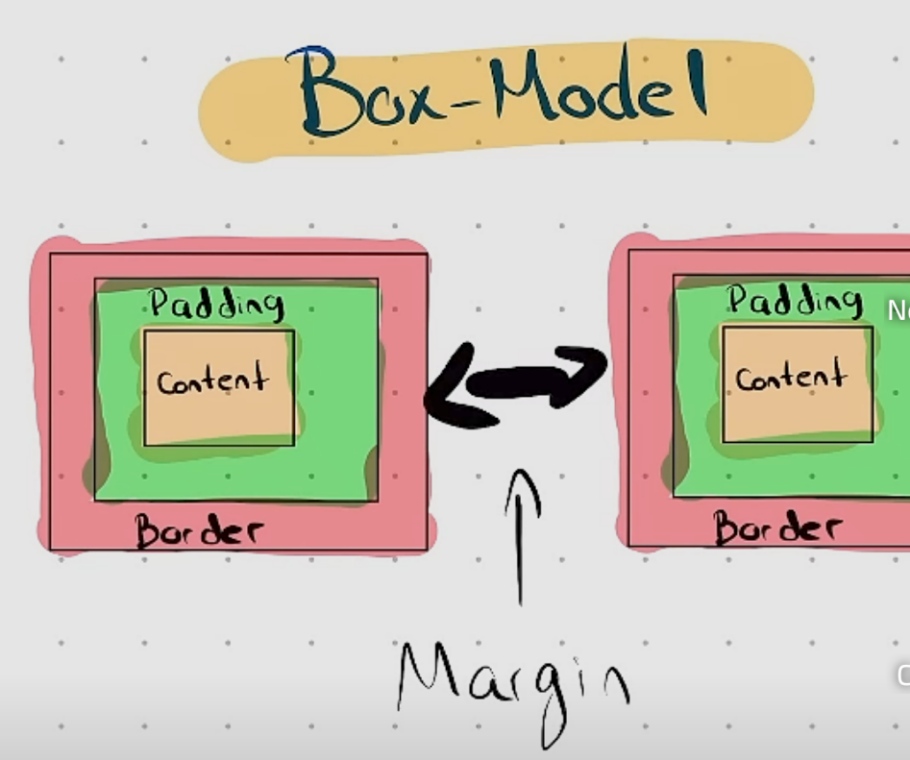 Box-Model
Padding
Content
Border
Padding
Content
Border
Margin